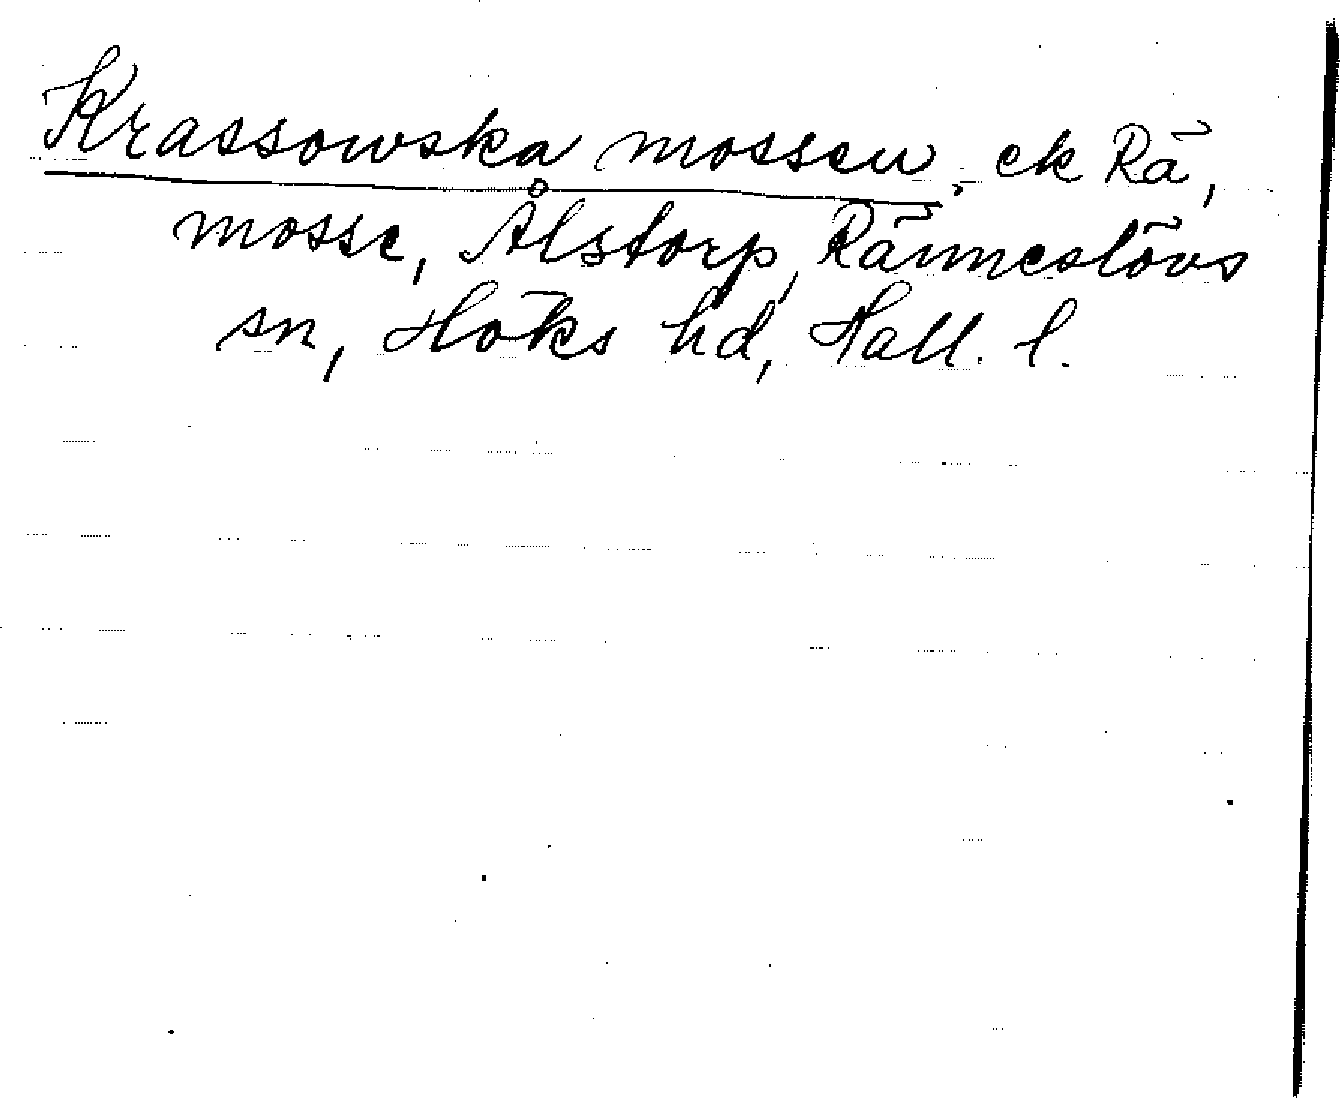 Krassowska mossen, ek Rä,
mosse, Ålstorp, Ränneslövs
sn, Höks hd, Hall. l.